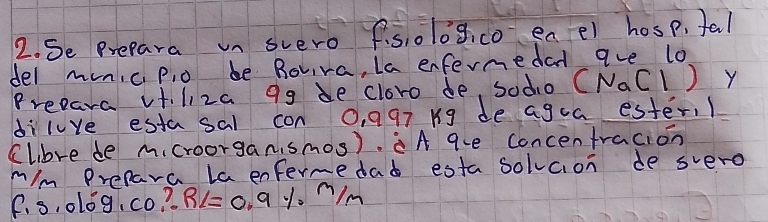 2. Se Prepara un suero fisiológico en el hospital
del municipio de Rovira, la enfermedad que lo
Prepara utiliza 9g de cloro de sodio (NaCl) y
diluye esta sal con 0,997 Kg de agua estéril
(libre de microorganismos). ¿A que concentración
m/m Prepara la enfermedad esta solución de suero
fisiológico? R/= 0,9 % m/m